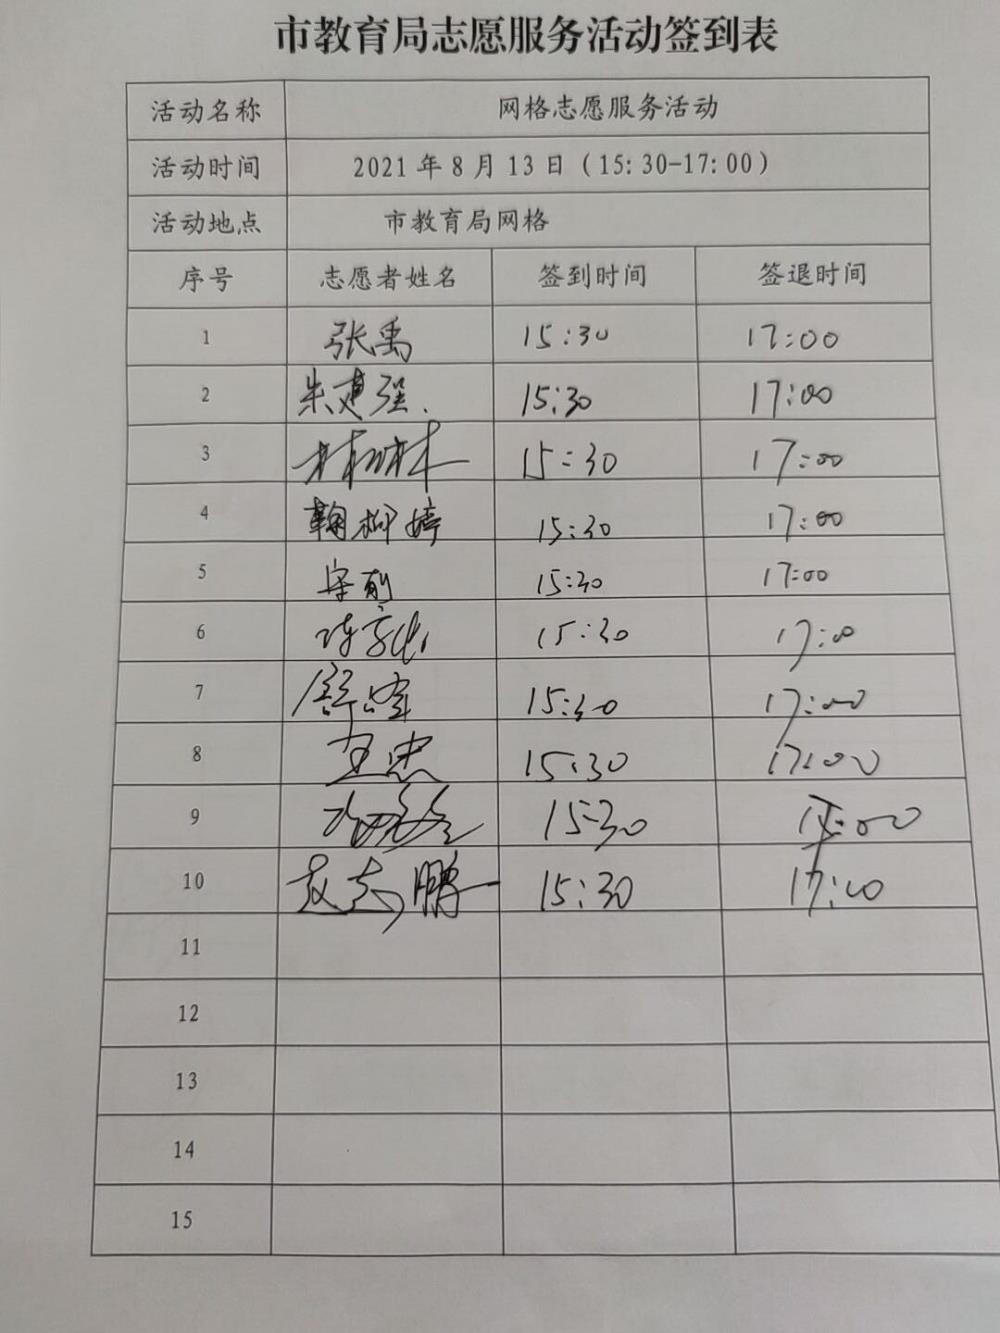 市教育局志愿服务活动签到表
活动名称 网格志愿服务活动
活动时间 2021年8月13日(15:30-17:00)
活动地点 市教育局网格
序号 志愿者姓名 签到时间 签退时间
1 张禹 15:30 17:00
2 朱建强 15:30 17:00
3 15:30 17:00
4 鞠柳婷 15:30 17:00
5 15:30 17:00
6 15:30 17:00
7 舒峰 15:30 17:00
8 王忠 15:30 17:00
9 15:30 17:00
10 赵志鹏 15:30 17:00
11
12
13
14
15